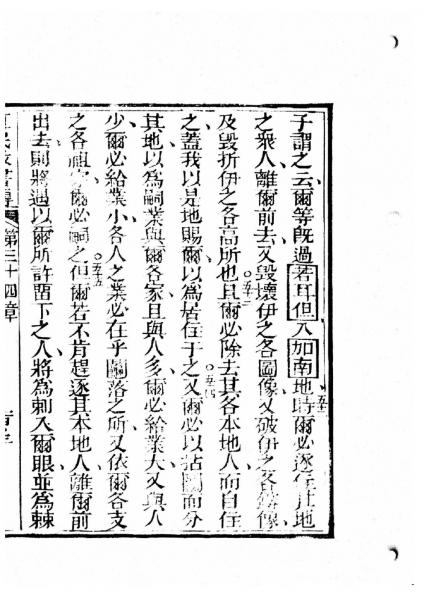 子謂之云爾等旣過若耳但入加南地時爾必逐住其地
之衆人離爾前去又毀壞伊之各圖像又破伊之各鑄像
及毀折伊之各高所也五三且爾必除去其各本地人而自住
之蓋我以是地賜爾以爲居住于之五四又爾必以拈鬮而分
其地以爲嗣業與爾各家且與人多爾必給業大又與人
少爾必給業小各人之業必在乎鬮落之所又依爾各支
之各祖家爾必嗣之五五但爾若不肯趕逐其本地人離爾前
出去則將過以爾所許留下之人將爲刺入爾眼並爲棘
第三十四章